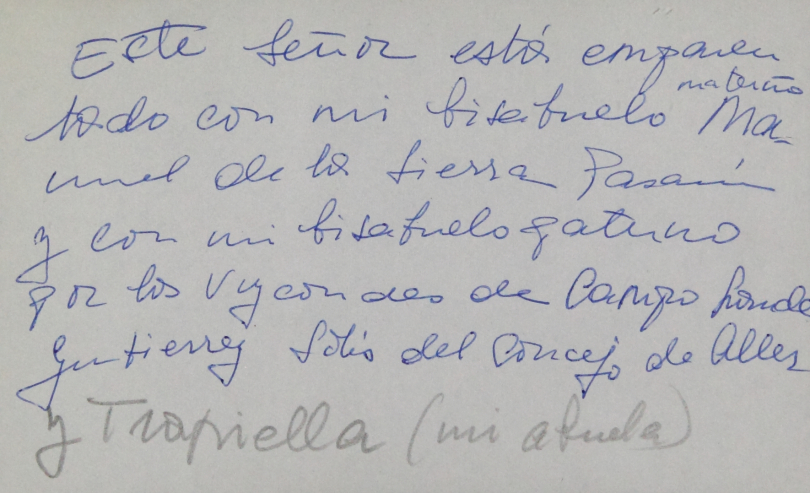 Este Señor está emparen
tado con mi bisabuelo materno Ma-
nuel de la Sierra Pasarín
y con mi bisabuelo paterno
por los Vizcondes de Campo Grande
Gutierrez Solís del Concejo de Aller
y Trapiella (mi abuela)